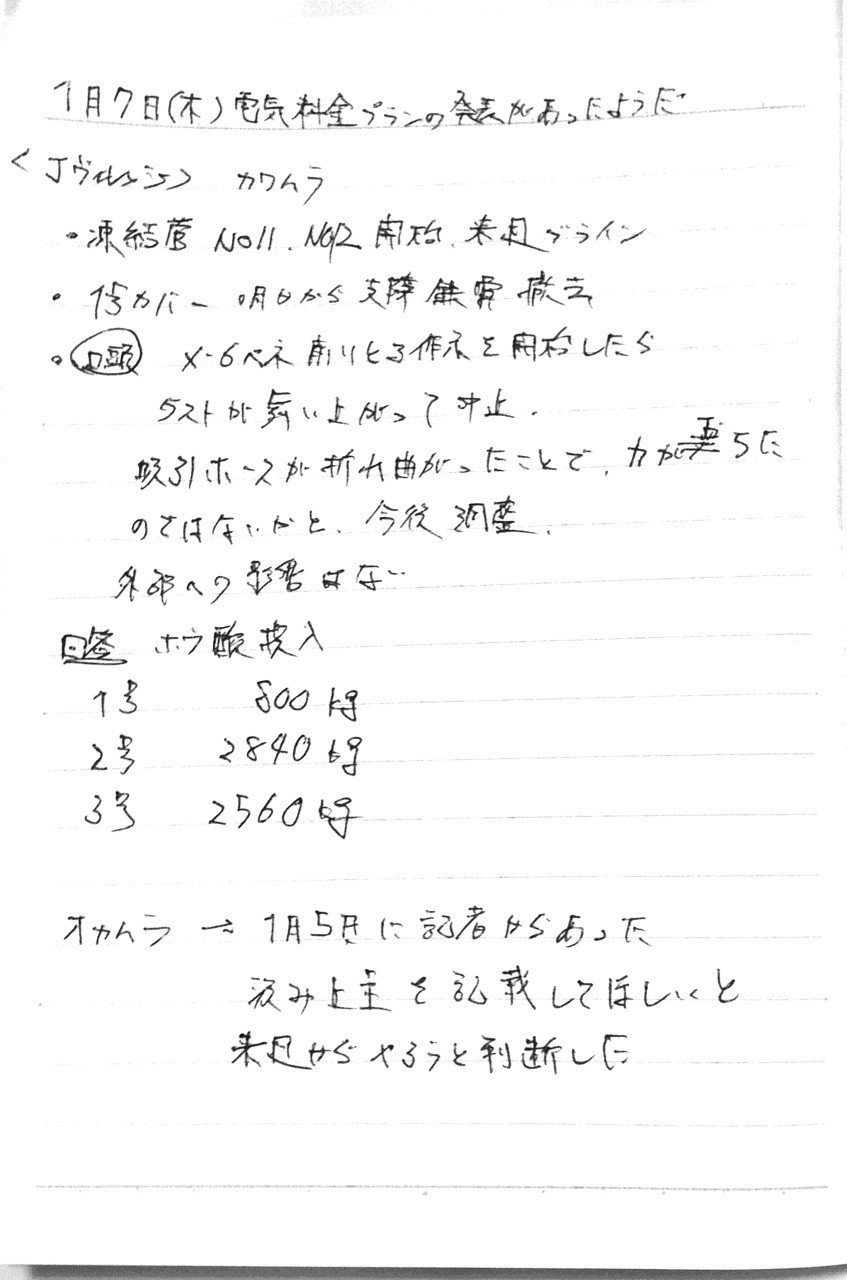 1月7日(木)電気料金プランの発表があったようだ
<Jヴィレッジ> カワムラ
・凍結管 No11.No12 開始.来週ブライン
・1号カバー 明日から支障鉄骨撤去
・口頭 X-6ペネ 削りとる作業を開始したら
ダストが舞い上がって中止.
吸引ホースが折れ曲がったことで、力が弱ったに
のではないかと、今後調整.
外部への影響はない
回答 ホウ酸投入
1号 800kg
2号 2840kg
3号 2560kg
オカムラ → 1月5日に記者からあった
汲み上量を記載してほしいと
来週からやろうと判断した